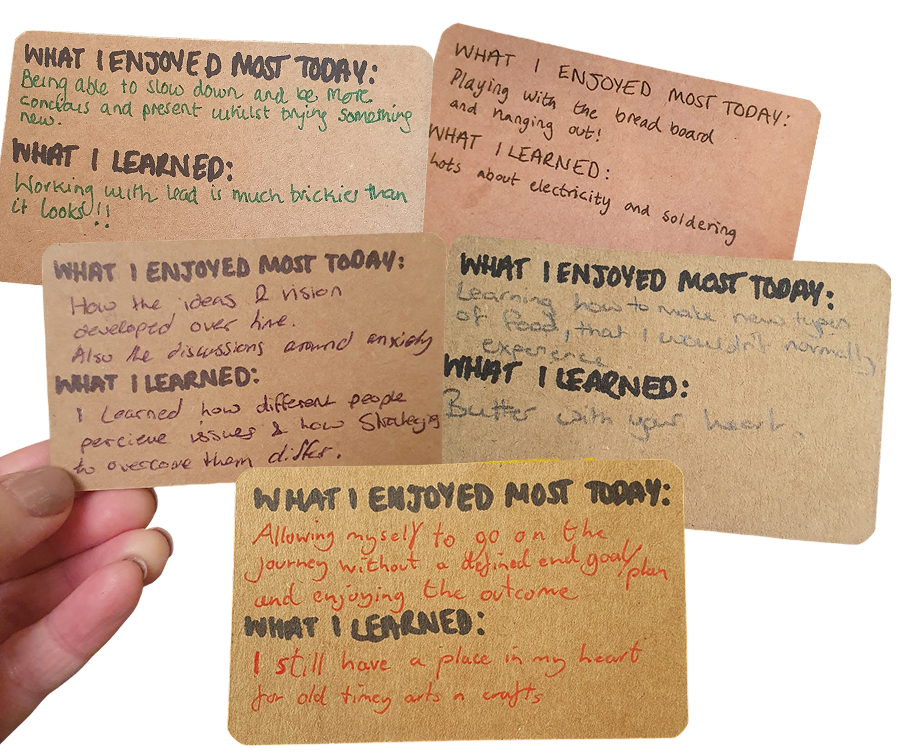 WHAT I ENJOYED MOST TODAY:
Being able to slow down and be more
concious and present whilst trying something
new.
WHAT I LEARNED:
Working with lead is much trickier than
it looks!!
WHAT I ENJOYED MOST TODAY:
Playing with the bread board
and hanging out!
WHAT I LEARNED:
hots about electricity and soldering
WHAT I ENJOYED MOST TODAY:
How the ideas & vision
developed over time.
Also the discussions around anxiety
WHAT I LEARNED:
I Learned how different people
percieve issues & how Strategies
to overcome them differ.
WHAT I ENJOYED MOST TODAY:
Learning how to make new types
of food, that I wouldn't normally
experience
WHAT I LEARNED:
Butter with your heart.
WHAT I ENJOYED MOST TODAY:
Allowing myself to go on the
journey without a defined end goal/plan
and enjoying the outcome
WHAT I LEARNED:
I still have a place in my heart
for old timey arts n crafts